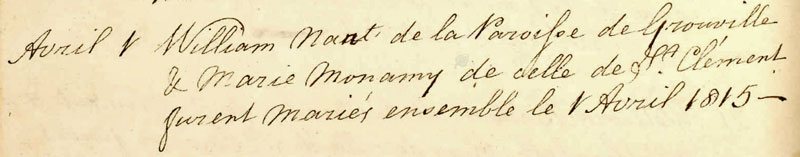 Avril 1 William Nant de la Paroisse de Grouville
& Marie Monamy de celle de St. Clément
furent mariés ensemble le 1 Avril 1815 —